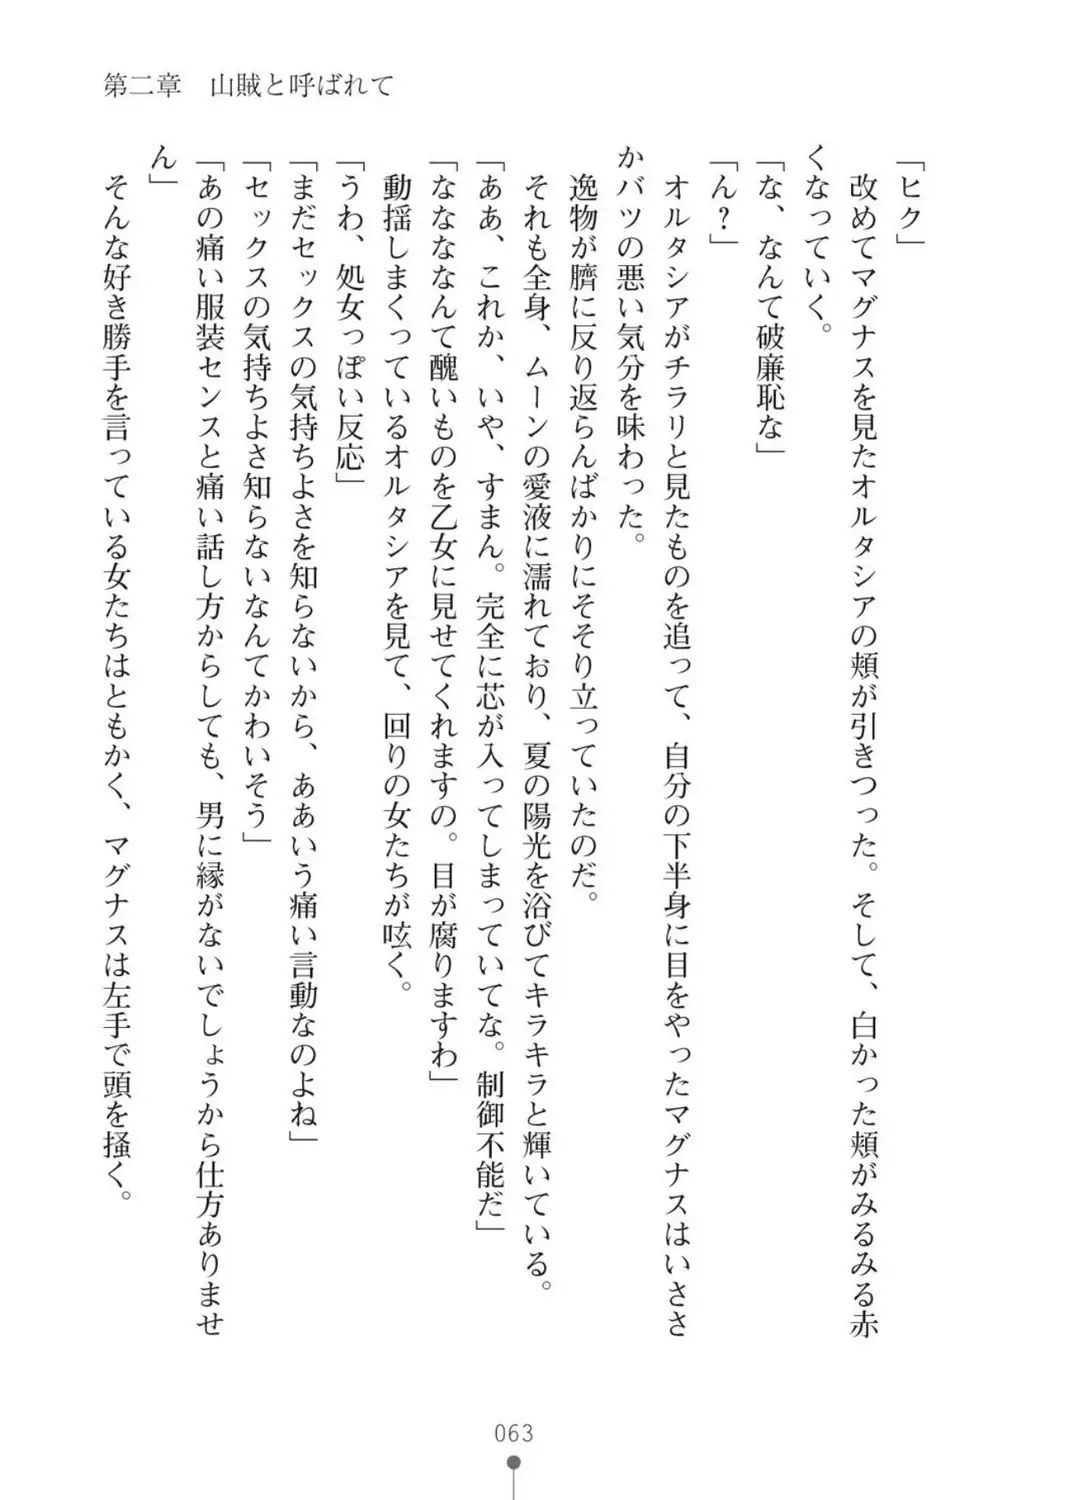 第二章　山賊と呼ばれて
「ヒク」
　改めてマグナスを見たオルタシアの頬が引きつった。そして、白かった頬がみるみる赤
くなっていく。
「な、なんて破廉恥な」
「ん？」
　オルタシアがチラリと見たものを追って、自分の下半身に目をやったマグナスはいささ
かバツの悪い気分を味わった。
　逸物が臍に反り返らんばかりにそそり立っていたのだ。
　それも全身、ムーンの愛液に濡れており、夏の陽光を浴びてキラキラと輝いている。
「ああ、これか、いや、すまん。完全に芯が入ってしまっていてな。制御不能だ」
「なななななんて醜いものを乙女に見せてくれますの。目が腐りますわ」
　動揺しまくっているオルタシアを見て、回りの女たちが呟く。
「うわ、処女っぽい反応」
「まだセックスの気持ちよさを知らないから、ああいう痛い言動なのよね」
「セックスの気持ちよさ知らないなんてかわいそう」
「あの痛い服装センスと痛い話し方からしても、男に縁がないでしょうから仕方ありませ
ん」
　そんな好き勝手を言っている女たちはともかく、マグナスは左手で頭を掻く。
063